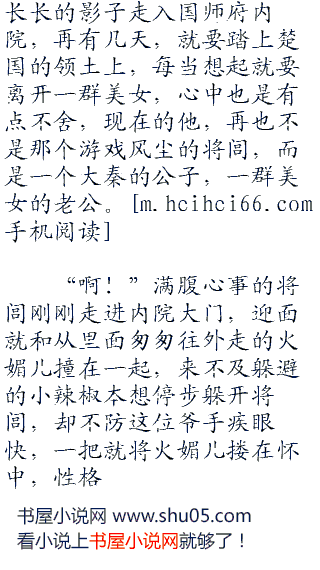 长长的影子走入国师府内
院，再有几天，就要踏上楚
国的领土上，每当想起就要
离开一群美女，心中也是有
点不舍，现在的他，再也不
是那个游戏风尘的将闾，而
是一个大秦的公子，一群美
女的老公。[m.hcihci66.com
手机阅读]
“啊！”满腹心事的将
闾刚刚走进内院大门，迎面
就和从里面匆匆往外走的火
媚儿撞在一起，来不及躲避
的小辣椒本想停步躲开将
闾，却不防这位爷手疾眼
快，一把就将火媚儿搂在怀
中，性格
书屋小说网 www.shu05.com
看小说上书屋小说网就够了！